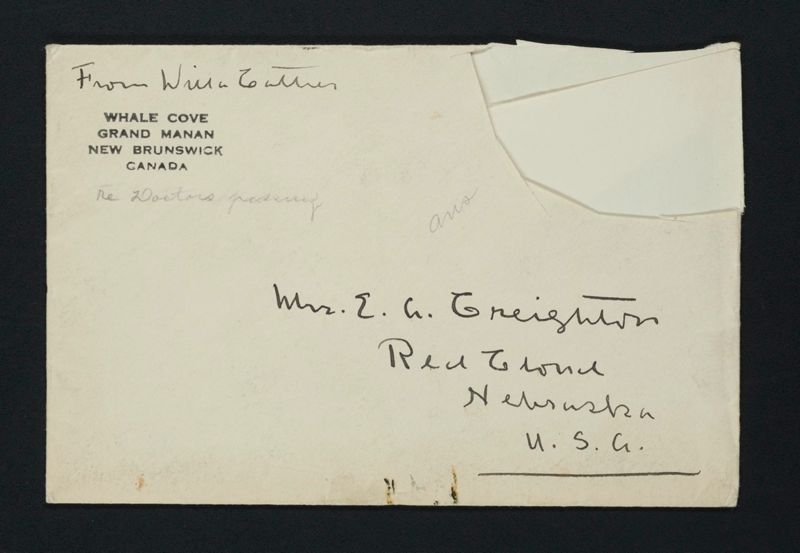 From Willa Cather
WHALE COVE
GRAND MANAN
NEW BRUNSWICK
CANADA
Re Doctors passing
ans
Mrs. E. A. Creighton
Red Cloud
Nebraska
U. S. A.